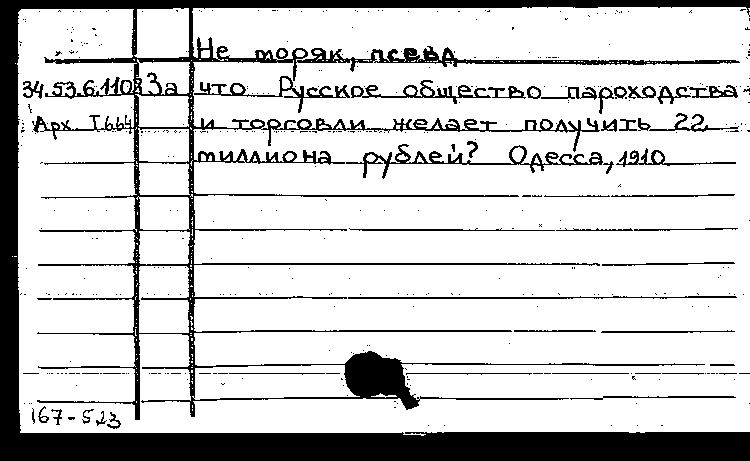 Не моряк, псевд
34.53.6.1108 За что Русское общество пароходства
Арх. Т664 и торговли желает получить 22
миллиона рублей? Одесса, 1910
167-523